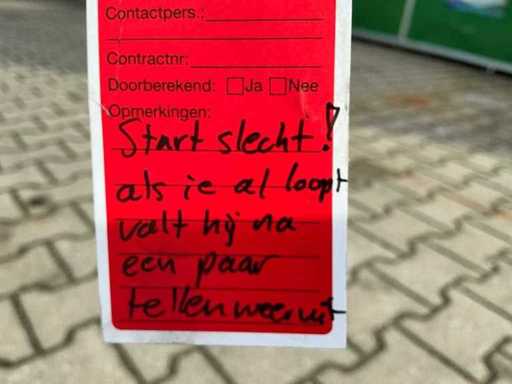 Contactpers.:
Contractnr:
Doorberekend: Ja Nee
Opmerkingen:
Start slecht!
als ie al loopt
valt hij na
een paar
tellen weer uit